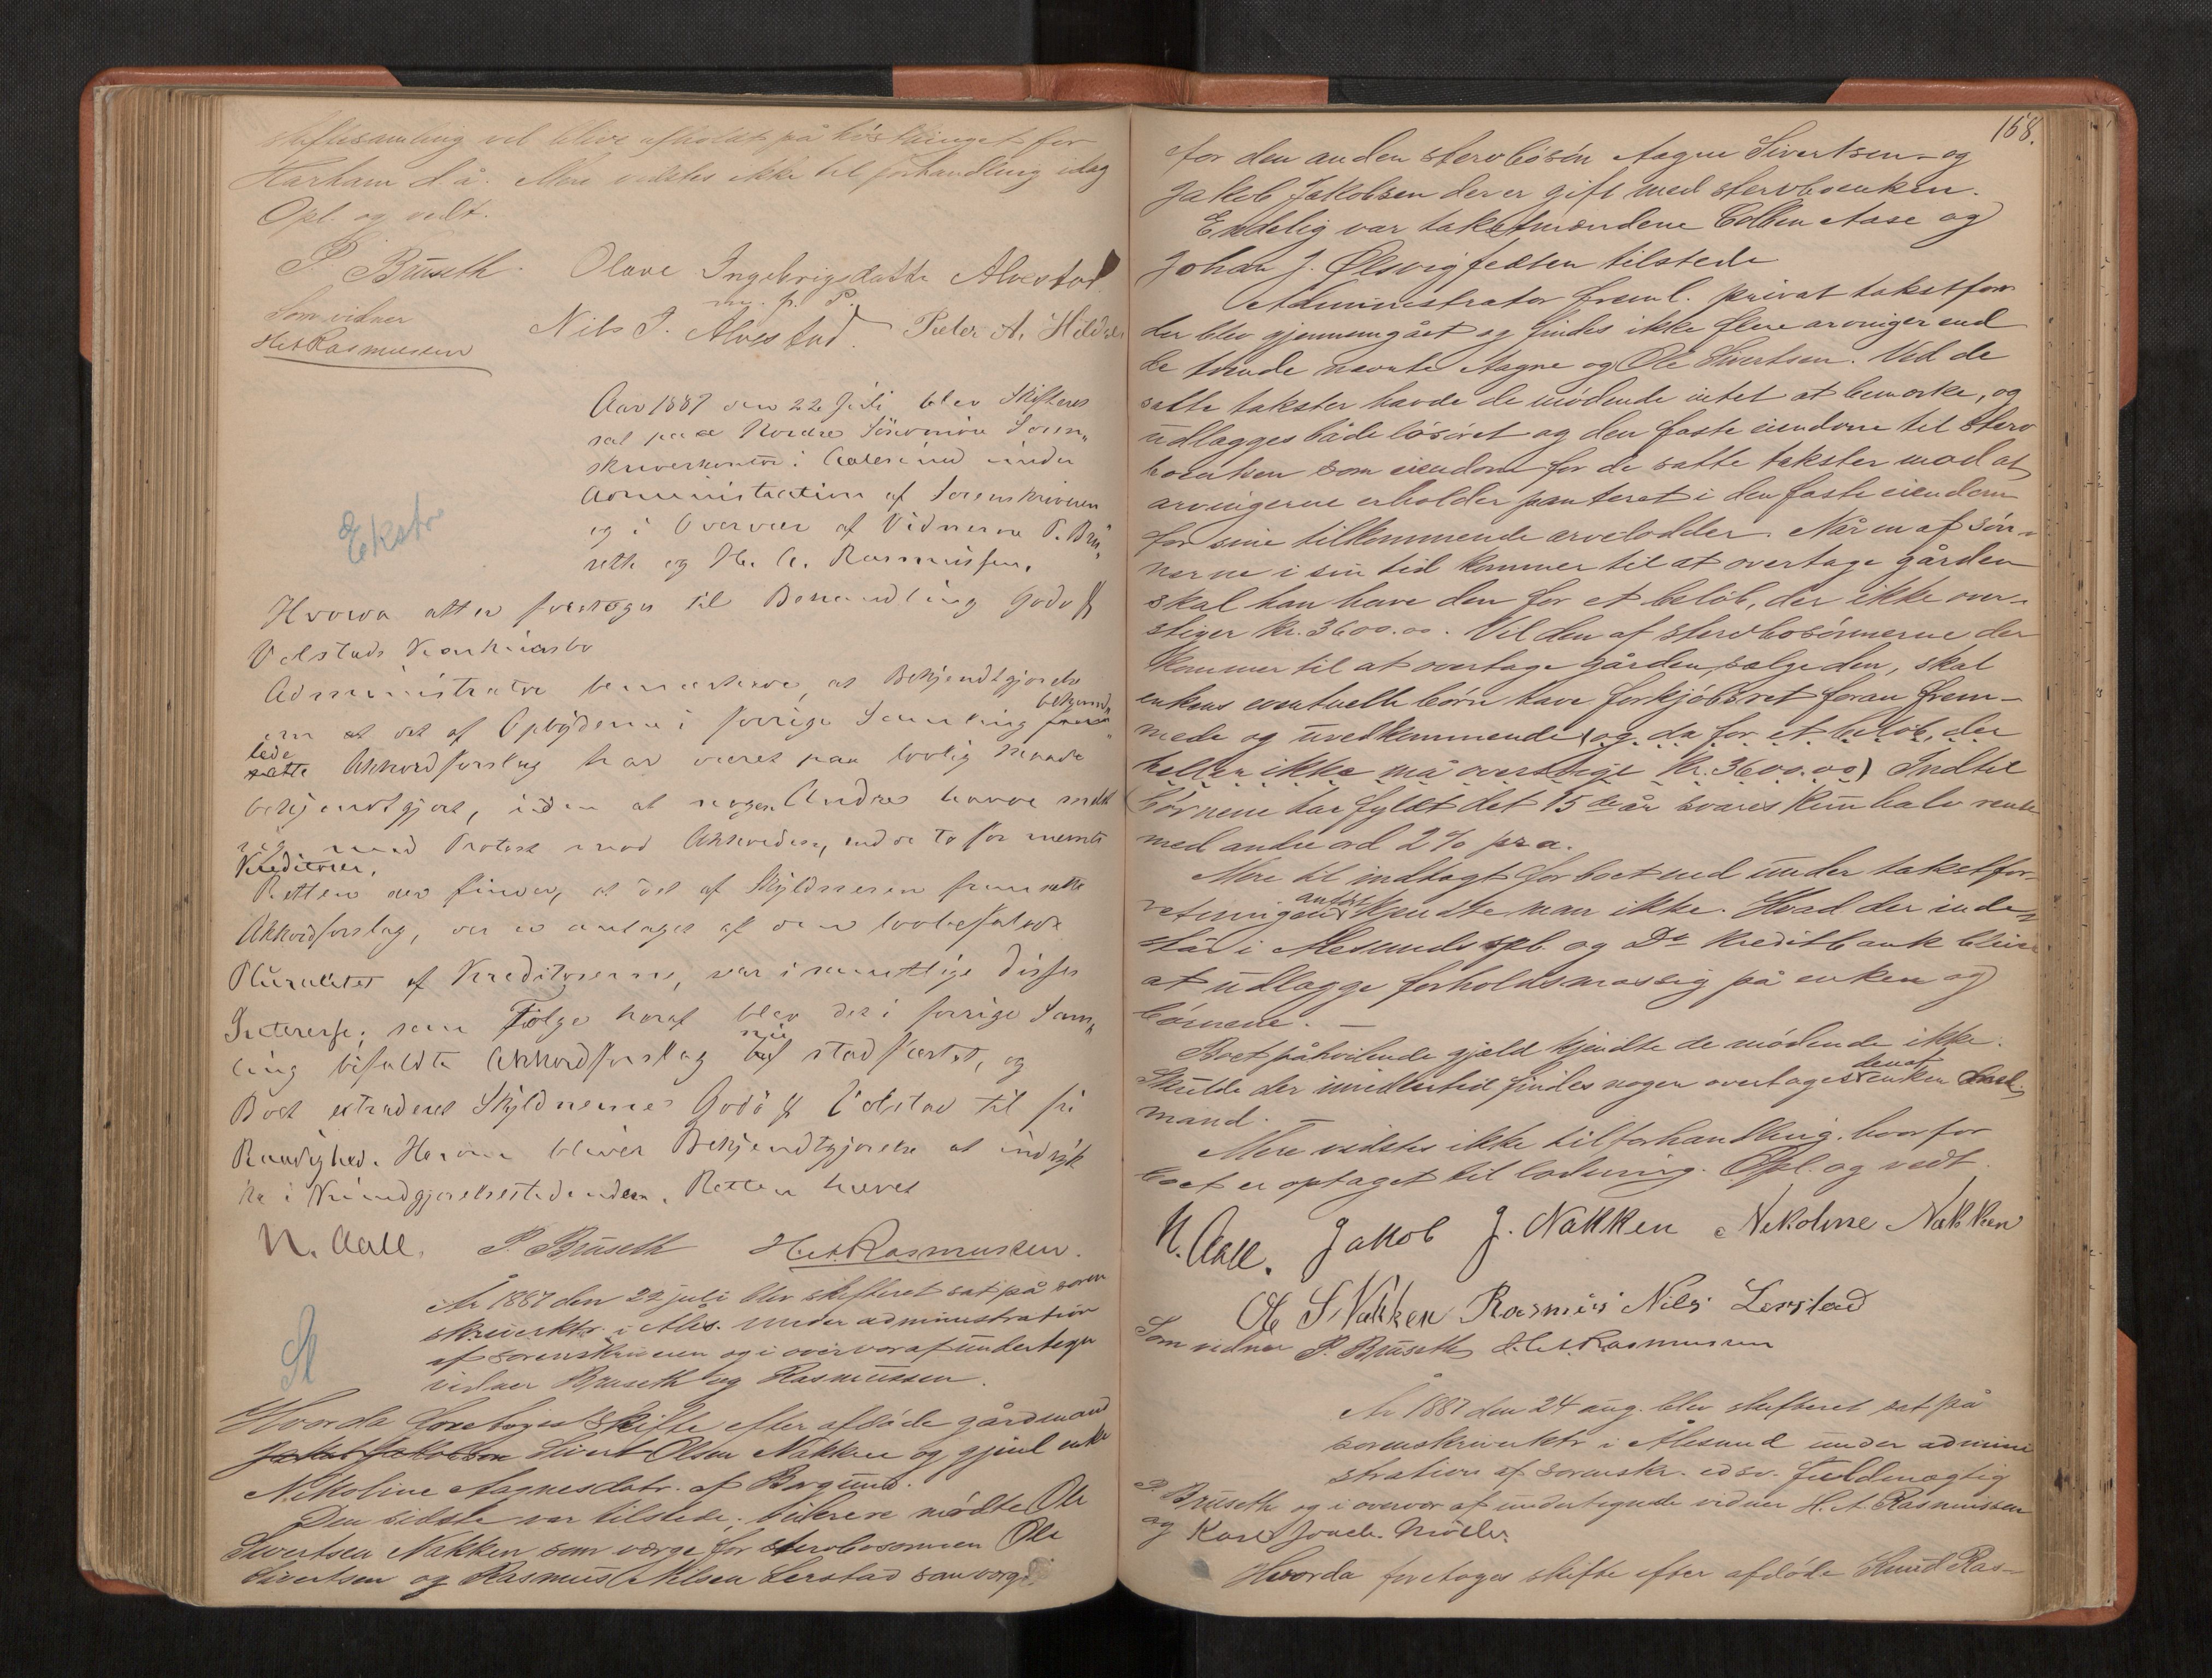 skiftesamling vil blive afholdt på høstthinget for
Harham d. å. Mere vidstes ikke til forhandling idag
Opl. og vedt.
P Bruseth. Olave Ingebrigdatte Alvestad
m. p. P.
Som vidner Nils J. Alvestad. Peder A. Hildre
H A Rasmussen
Aar 1887 den 22 Juli blev Skifteret
sat paa Nordre Søndmøre Soren„
skriverkontor i Aalesund under
Administration af Sorenskriveren
og i Overvær af Vidnerne P. Bru„
seth og H. A. Rasmussen.
Ekstr
Hvorda atter foretoges til Behandling Godø &
Volstads Konkursbo
Administrator bemærkede, at Bekjendtgjørelse
om at det af Opbyderne i forrige Samling bekjend„
lede Akkordforslag har været paa lovlig Maade
bekjendtgjort, uden at nogen Andre havde meldt
sig med Protest mod Akkorden, end de to før nævnte
Kreditorer.
Retten der finder, at det af Skyldneren fremsatte
Akkordforslag, der er antaget af den lovbefalede
Pluralitet af Kreditorerne, var i samtlige disses
Interesse; som Følge heraf blev det i forrige Sam„
ling bifaldte Akkordforslag nu stadfæstet, og
Boet extraderet Skyldnerne Godø & Volstad til fri
Raadighed. Herom bliver Bekjendtgjørelse at indryk
ke i Kundgjørelsestidenden. Retten hævet
N. Aall. P. Bruseth H A Rasmussen.
År 1887 den 22 juli blev skifteret sat på soren
skriverktr. i Ales. under administration
af sorenskriveren og i overvær af undertegn
vidner Bruseth og Rasmussen.
Sk
Hvorda foretoges skifte efter afdøde gårdmand
Jakob Jakobsen Sivert Olsen Nakken og gjenl. enke
Nikoline Aagnesdatr. af Borgund.
Den sidste var tilstede; videre mødte Ole
Sivertsen Nakken som værge for stervbosønnen Ole
Sivertsen og Rasmus Nilsen Lerstad som værge
158.
for den anden stervbosøn Aagne Sivertsen og
Jakob Jakobsen der er gift med stervboenken.
Endelig var takstmændene Colben Aase og
Johan J. Ølsvigfedten tilstede
Administrator freml. privat takstforr
der blev gjennemgået og findes ikke flere arvinger end
de tvende nævnte Aagne og Ole Sivertsen. Ved de
satte takster havde de mødende intet at bemærke, og
udlægges både løsøret og den faste eiendom til sterv
boenken som eiendom for de satte takster mod at
arvingerne erholder panteret i den faste eiendom
for sine tilkommende arvelodder. Når en af søn„
nerne i sin tid kommer til at overtage gården
skal han have den for et beløb, der ikke over„
stiger kr. 3600.00. Vil den af stervbosønnerne der
kommer til at overtage gården, sælge den, skal
enkens eventuelle børn have forkjøbsret foran frem„
mede og uvedkommende (og da for et beløb, der
heller ikke må overstige kr. 3600.00) Indtil
børnene har fyldt det 15de år svares kun halv rente
med andre ord 2% pr a.
Mere til indtægt for boet end under takstfor„
retningen anført kjendte man ikke. Hvad der inde„
står i Alesunds spb. og Do kreditbank bliver
at udlægge forholdsmæssig på enken og
børnene. —
Boet påhvilende gjæld kjendte de mødende ikke.
Skulde der imidlertid findes nogen overtages denaf enken
mand. —
Mere vidstes ikke til forhandling, hvorfor
boet er optaget til lodning. Opl. og vedt.
N. Aall. Jakob J. Nakken Nikoline Nakken
Ole S Nakken Rasmus Nils Lerstad
Som vidner P. Bruseth H A Rasmussen
År 1887 den 24 aug. blev skifteret sat på
sorenskriverktr i Ålesund under admini
stration af sorenskr. edsv. fuldmægtig
P. Bruseth og i overvær af undertegnede vidner H. A. Rasmussen
og Karl Joach. Møller.
Hvorda foretoges skifte efter afdøde Knud Ras-